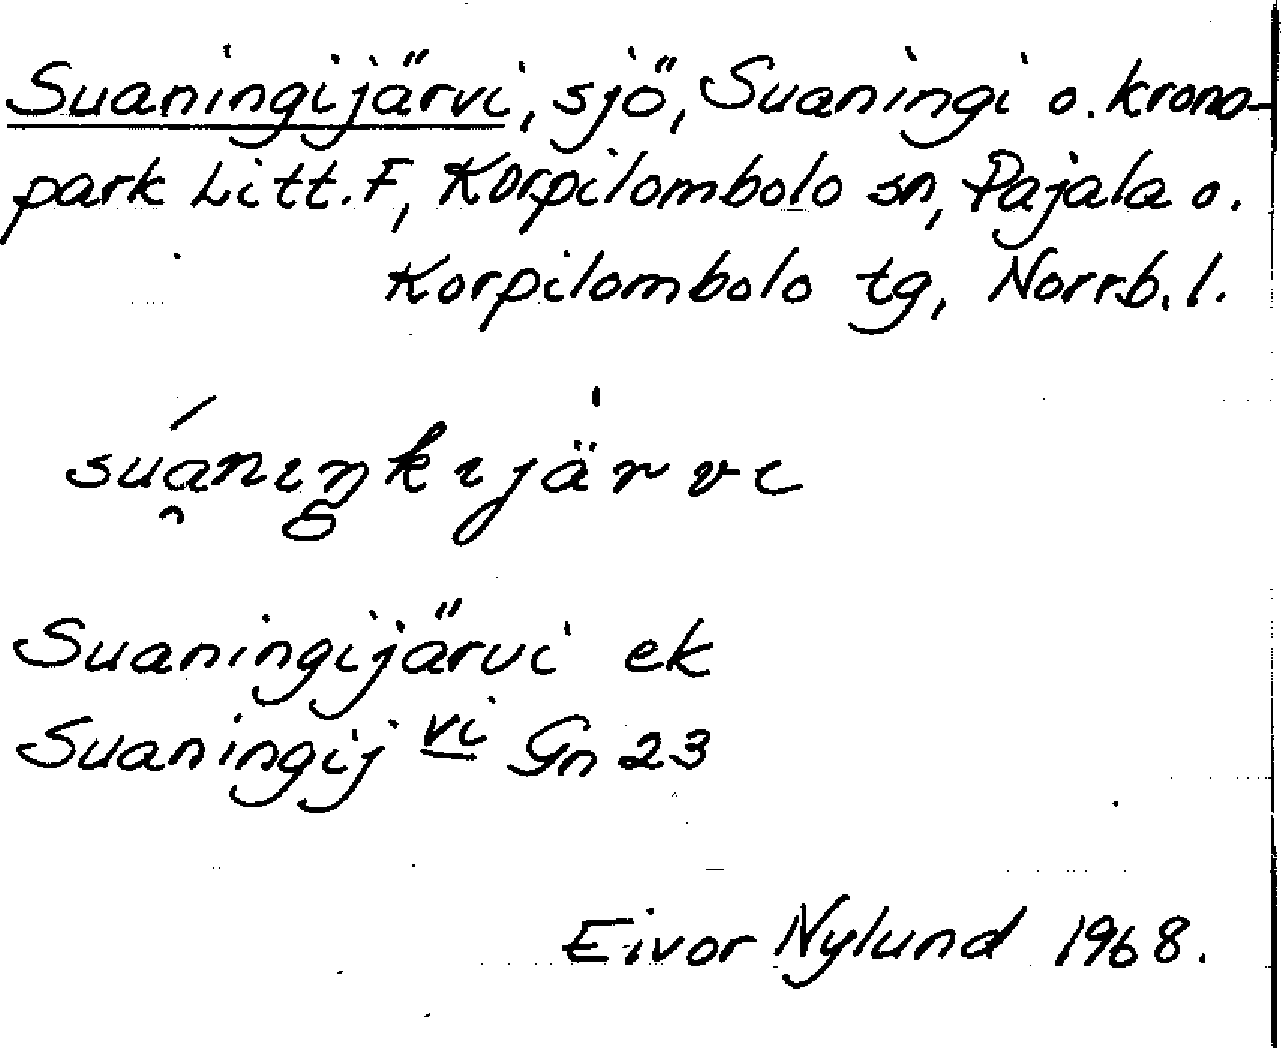 Suaningijärvi, sjö, Suaningi o. krono-
park Litt. F, Korpilombolo sn, Pajala o.
Korpilombolo tg, Norrb. l.
suáninkijärvi
Suaningijärvi ek
Suaningij vi Gn 23
Eivor Nylund 1968.